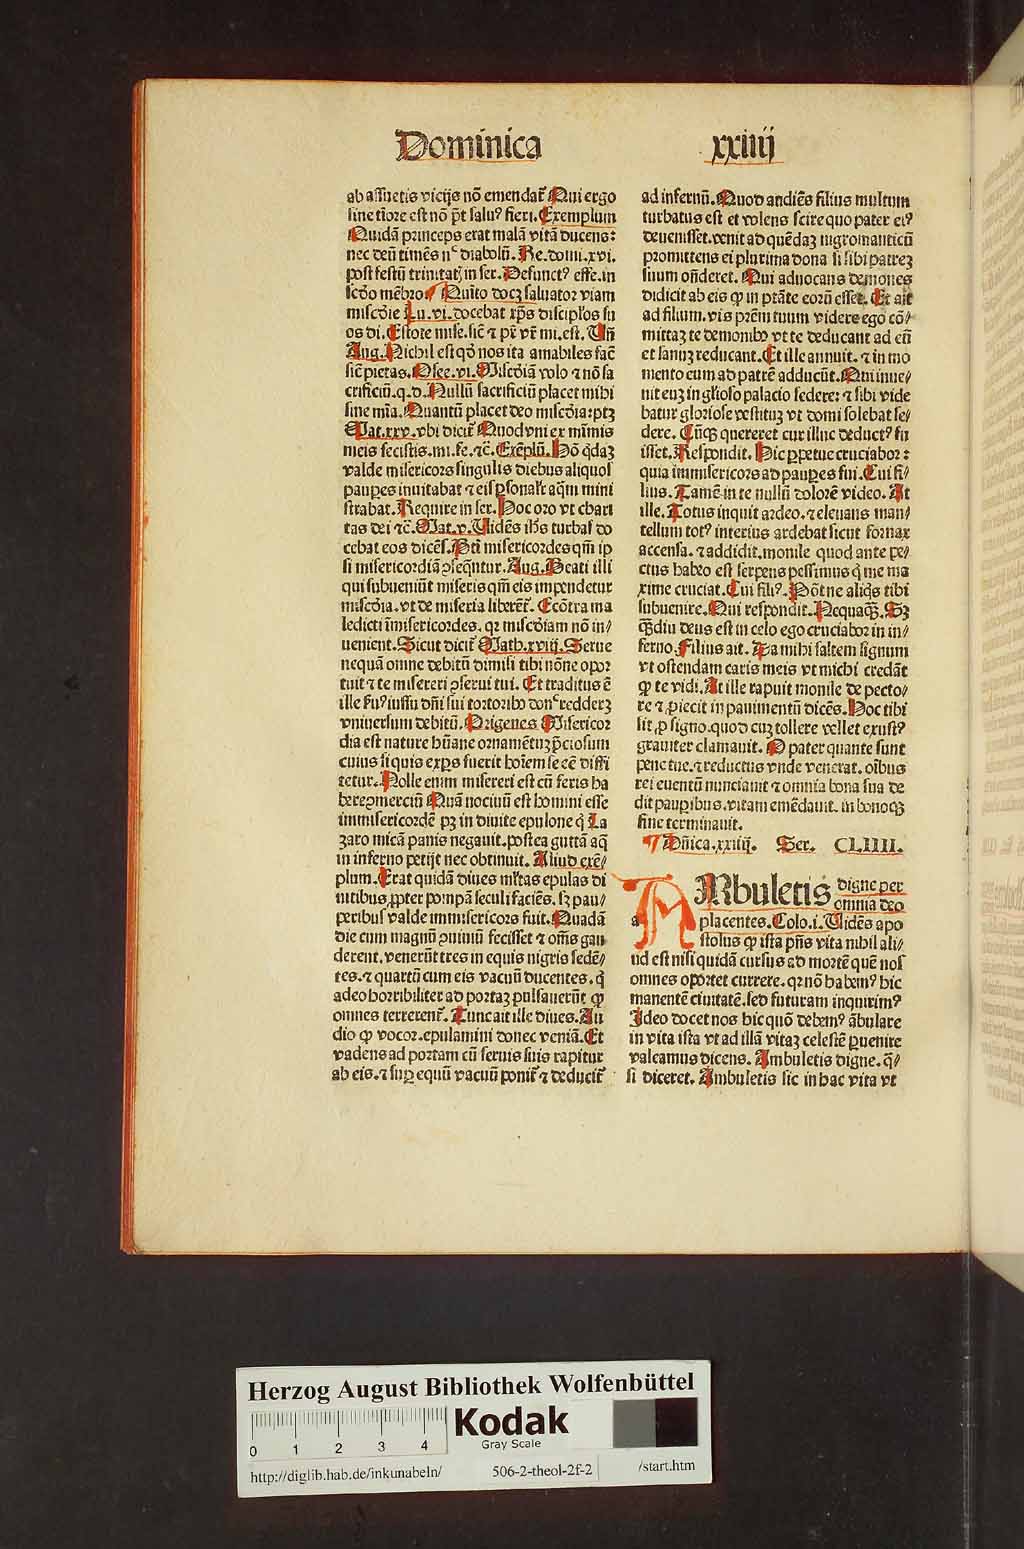 Dominica xxiiij
ab assuetis vicijs nō emendat᷑ Qui ergo
sine tīore est nō pt̄ saluꝰ fieri. Exemplum
Quidā princeps erat malā vitā ducens:
nec deū timēs nͨ diabolū. Re. domi. xvi.
post festū trinitatꝭ in ser. Defunctꝰ esse. in
scd̄o mēbro ¶ Quīto docꝫ saluator viam
mis̄cdie Lu. vi. docebat xp̄s discipl̓os su
os di. Estote mise. sic̄ ⁊ pr̄ vr̄ mi. est. Vn̄
Aug. Nichil est qd̓ nos ita amabiles fac̄
sic̄ pietas. Osee. vi. Misc̄diā volo ⁊ nō sa
crificiū. q. d. Nullū sacrificiū placet mihi
sine mīa. Quantū placet deo misc̄dia: ptꝫ
Mat. xxv. vbi dicit᷑ Quod vni ex mīmis
meis fecistis. mi. fe. ⁊c̄. Exēplū. Hō q̇daꝫ
valde misericors singulis diebus aliquos
paupes inuitabat ⁊ eis ꝑsonalr̄ aq̄m mini
strabat. Require in ser. Hoc oro vt chari
tas dei ⁊c̄. Mat. v. Vidēs ih̓s turbas do
cebat eos dicēs. Bt̄i misericordes qm̄ ip
si misericordiā ꝯseq̄ntur. Aug. Beati illi
qui subueniūt miseris qm̄ eis impendetur
misc̄dia. vt de miseria liberēt᷑. Ecōtra ma
ledicti īmisericordes. qꝛ misc̄diam nō in⸗
uenient. Sicut dicit᷑ Math. xviij. Serue
nequā omne debitū dimisi tibi nōne opor
tuit ⁊ te misereri ꝯserui tui. Et traditus ē
ille ẜuꝰ iussu dn̄i sui tortoribꝰ donͨ redderꝫ
vniuersum debitū. Origenes Misericor
dia est nature hūane ornamētuꝫ p̄ciosum
cuius si quis exps̄ fuerit hoīem se eē diffi
tetur. Nolle enim misereri est cū feris ha
bere ꝯmerciū Quā nociuū est homini esse
immisericordē pꝫ in diuite epulone q̇ La
zaro micā panis negauit. postea guttā aq̄
in inferno petijt nec obtinuit. Aliud exē⸗
plum. Erat quidā diues ml̓tas epulas di
uitibus ꝓpter pompā seculi faciēs. sꝫ pau⸗
peribus valde immisericors fuit. Quadā
die cum magnū ꝯuiuiū fecisset ⁊ om̄s gau
derent. venerūt tres in equis nigris sedē⸗
tes. ⁊ quartū cum eis vacuū ducentes. q̇
adeo horribiliter ad portaꝫ pulsauerūt ꝙ
omnes terrerent᷑. Tunc ait ille diues. Au
dio ꝙ vocor. epulamini donec veniā. Et
vadens ad portam cū seruis suis rapitur
ab eis. ⁊ sup equū vacuū ponit᷑ ⁊ deducit᷑
ad infernū. Quod andiēs filius multum
turbatus est et volens scire quo pater eiꝰ
deuenisset. venit ad quēdaꝫ nigromanticū
promittens ei plurima dona si sibi patreꝫ
suum on̄deret. Qui aduocans demones
didicit ab eis ꝙ in ptāte eorū esset. Et ait
ad filium. vis prēm tuum videre ego cō⸗
mittaꝫ te demonibꝰ vt te deducant ad eū
et sanuꝫ reducant. Et ille annuit. ⁊ in mo
mento eum ad patrē adducūt. Qui inue⸗
nit euꝫ in gl̓ioso palacio sedere: ⁊ sibi vide
batur gloriose vestituꝫ vt domi solebat se⸗
dere. Cūqꝫ quereret cur illuc deductꝰ fu
isset. Respondit. Hic ꝑpetue cruciabor:
quia immisericors ad pauꝑes fui. Cui fi⸗
lius. Tamē in te nullū dolorē video. At
ille. Totus inquit ardeo. ⁊ eleuans man⸗
tellum totꝰ interius ardebat sicut fornax
accensa. ⁊ addidit. monile quod ante pe⸗
ctus habeo est serpens pessimus q̇ me ma
xime cruciat. Cui filiꝰ. Pōt ne aliq̇s tibi
subuenire. Qui respondit. Nequaqꝫ. Sꝫ
qꝫdiu deus est in celo ego cruciabor in in⸗
ferno. Filius ait. Da mihi saltem signum
vt ostendam caris meis vt michi credāt
ꝙ te vidi. At ille rapuit monile de pecto⸗
re ⁊ ꝓiecit in pauimentū dicēs. Hoc tibi
sit ꝓ signo. quod cuꝫ tollere vellet exustꝰ
grauiter clamauit. O pater quante sunt
pene tue. ⁊ reductus vnde venerat. oībus
rei euentū nunciauit ⁊ omnia bona sua de
dit paupibus. vitam emēdauit. in bonoqꝫ
fine terminauit.
¶ Dn̄ica. xxiiij. Ser. CLIIII.
AMbuletis digne per
omnia deo
a placentes. Colo. i. Vidēs apo
stolus ꝙ ista pn̄s vita nihil ali⸗
ud est nisi quidā cursus ad mortē quē nos
omnes oportet currere. qꝛ nō habemꝰ hic
manentē ciuitatē. sed futuram inquirimꝰ
Ideo docet nos hic quō debemꝰ ābulare
in vita ista vt ad illā vitaꝫ celestē ꝑuenire
valeamus dicens. Ambuletis digne. q̄⸗
si diceret. Ambuletis sic in hac vita vt
Herzog August Bibliothek Wolfenbüttel
0 1 2 3 4
Kodak
Gray Scale
http://diglib.hab.de/inkunabeln/ 506-2-theol-2f-2 /start.htm